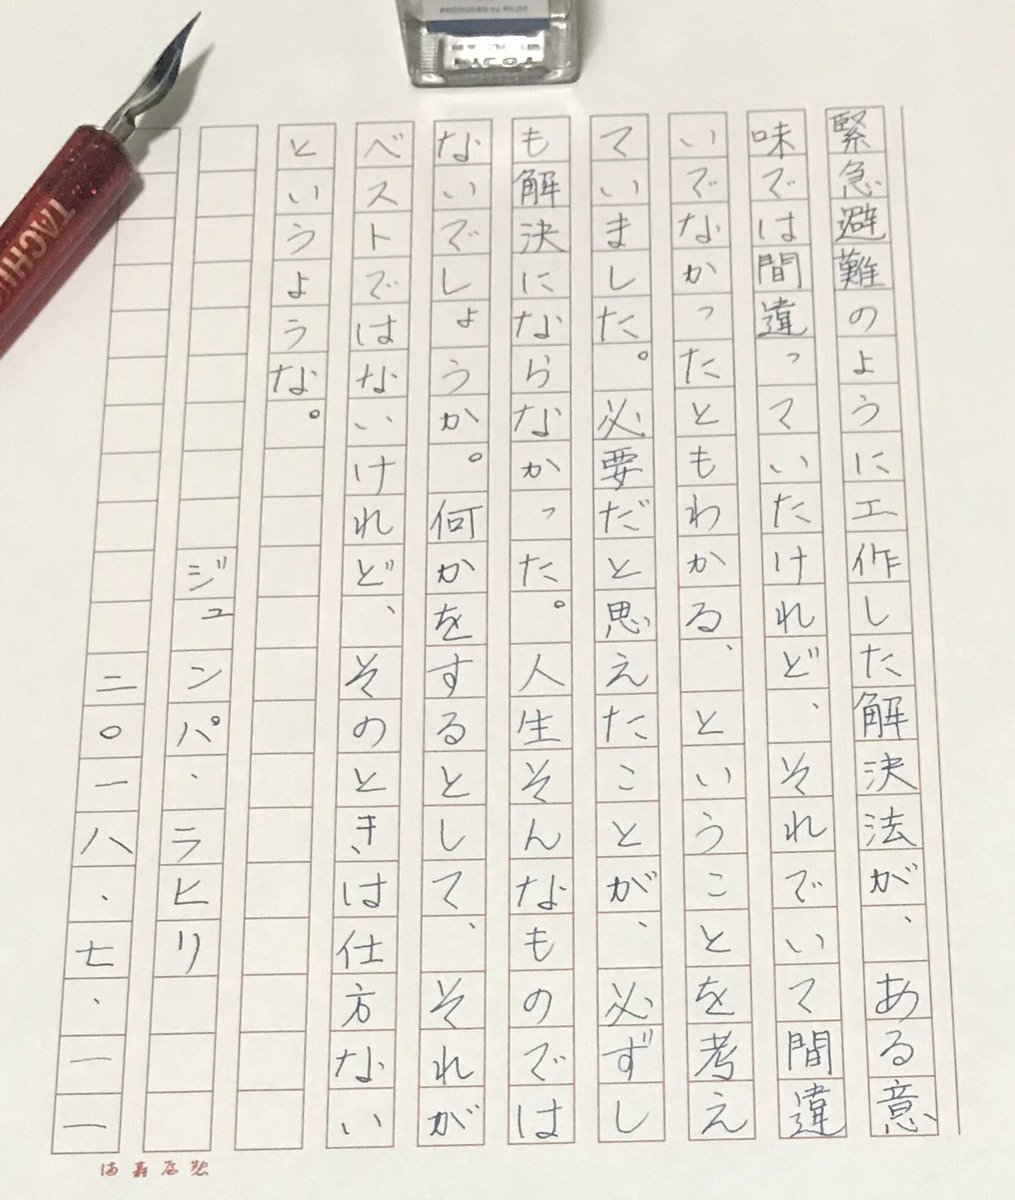 緊急避難のように工作した解決法が、ある意
味では間違っていたけれど、それでいて間違
いでなかったともわかる、ということを考え
ていました。必要だと思えたことが、必ずし
も解決にならなかった。人生そんなものでは
ないでしょうか。何かをするとして、それが
ベストではないけれど、そのときは仕方ない
というような。
ジュンパ・ラヒリ
二〇一八・七・一一
PRODUCED by PILOT
TACHI